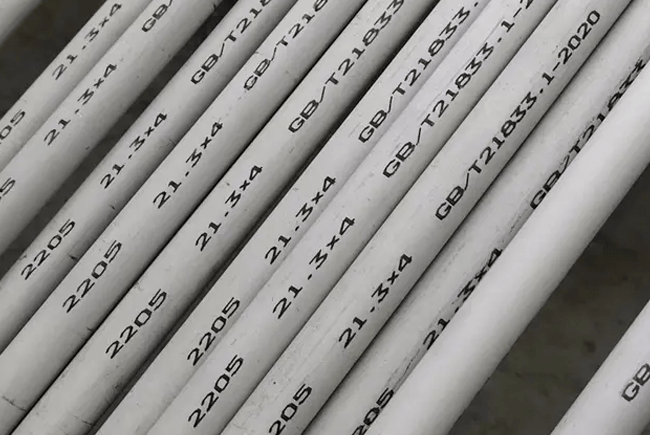 05 21.3x4
5 21.3x4 GB
2205 21.3x4 GB/T218
2205 21.3x4 GB/T218
2205 21.3x4 GB/T21833
2205 21.3x4 GB/T21833.
2205 21.3x4 GB/T21833.1-2
205 21.3x4 GB/T21833.1-2020
205 21.3x4 GB/T21833
GB